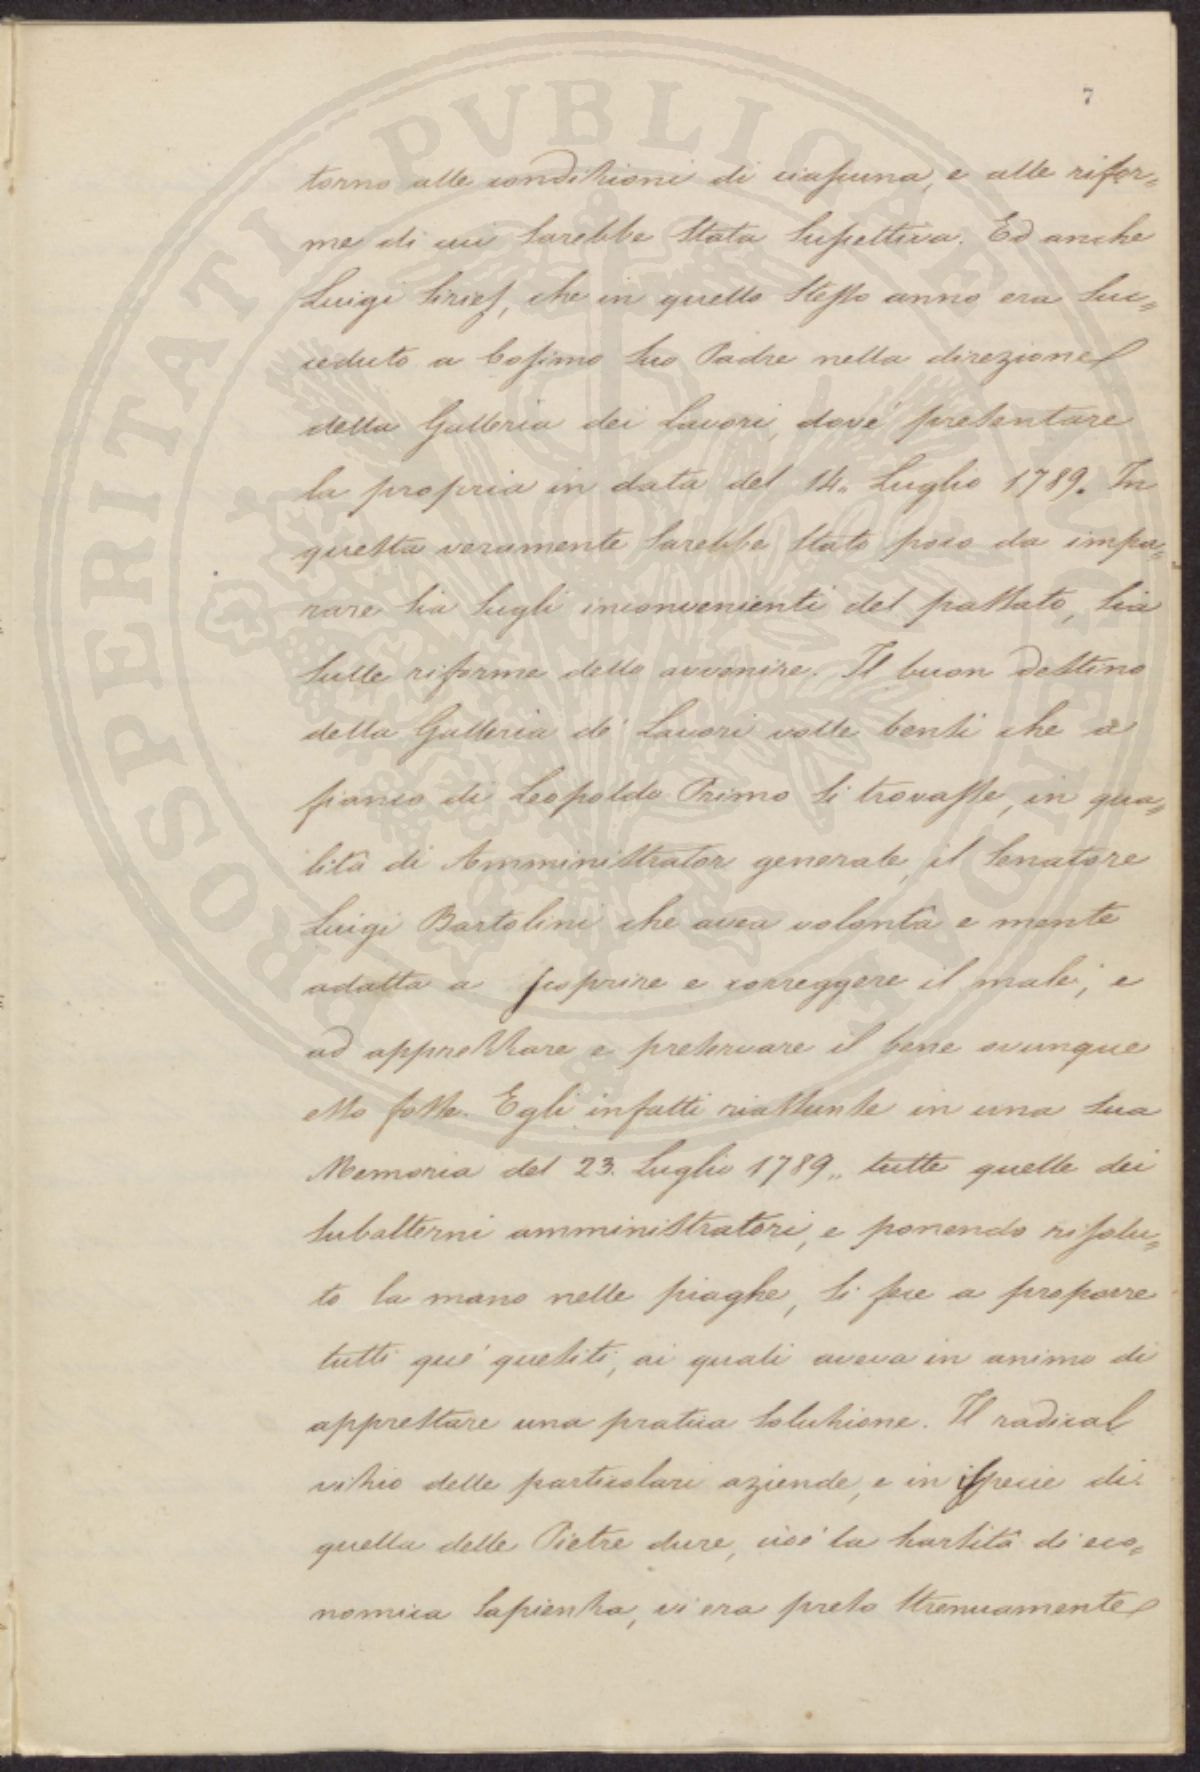 7
torno alle condizioni di ciascuna, e alle rifor=
me di cui sarebbe stata suscettiva. Ed anche
Luigi Siries, che in quello stesso anno era suc=
ceduto a Cosimo suo Padre nella direzione
della Galleria dei Lavori, dové presentare
la propria in data del 14. Luglio 1789. In
questa veramente sarebbe stato poco da impa=
rare sia sugli inconvenienti del passato, sia
sulle riforme dello avvenire. Il buon destino
della Galleria de' Lavori volle bensì che a
fianco di Leopoldo Primo si trovasse, in qua=
lità di Amministrator generale, il Senatore
Luigi Bartolini che avea volontà e mente
adatta a scoprire e correggere il male; e
ad apprezzare e preservare il bene ovunque
esso fosse. Egli infatti riassunse in una sua
Memoria del 23. Luglio 1789., tutte quelle dei
subalterni amministratori, e ponendo risolu=
to la mano nelle piaghe, si fece a proporre
tutti que' quesiti, ai quali aveva in animo di
apprestare una pratica soluzione. Il radical
vizio delle particolari aziende, e in ispecie di
quella delle Pietre dure, cioè la scarsità di eco=
nomica sapienza, vi era preso strenuamente
PROSPERITATI PVBLICAE AVGENDAE